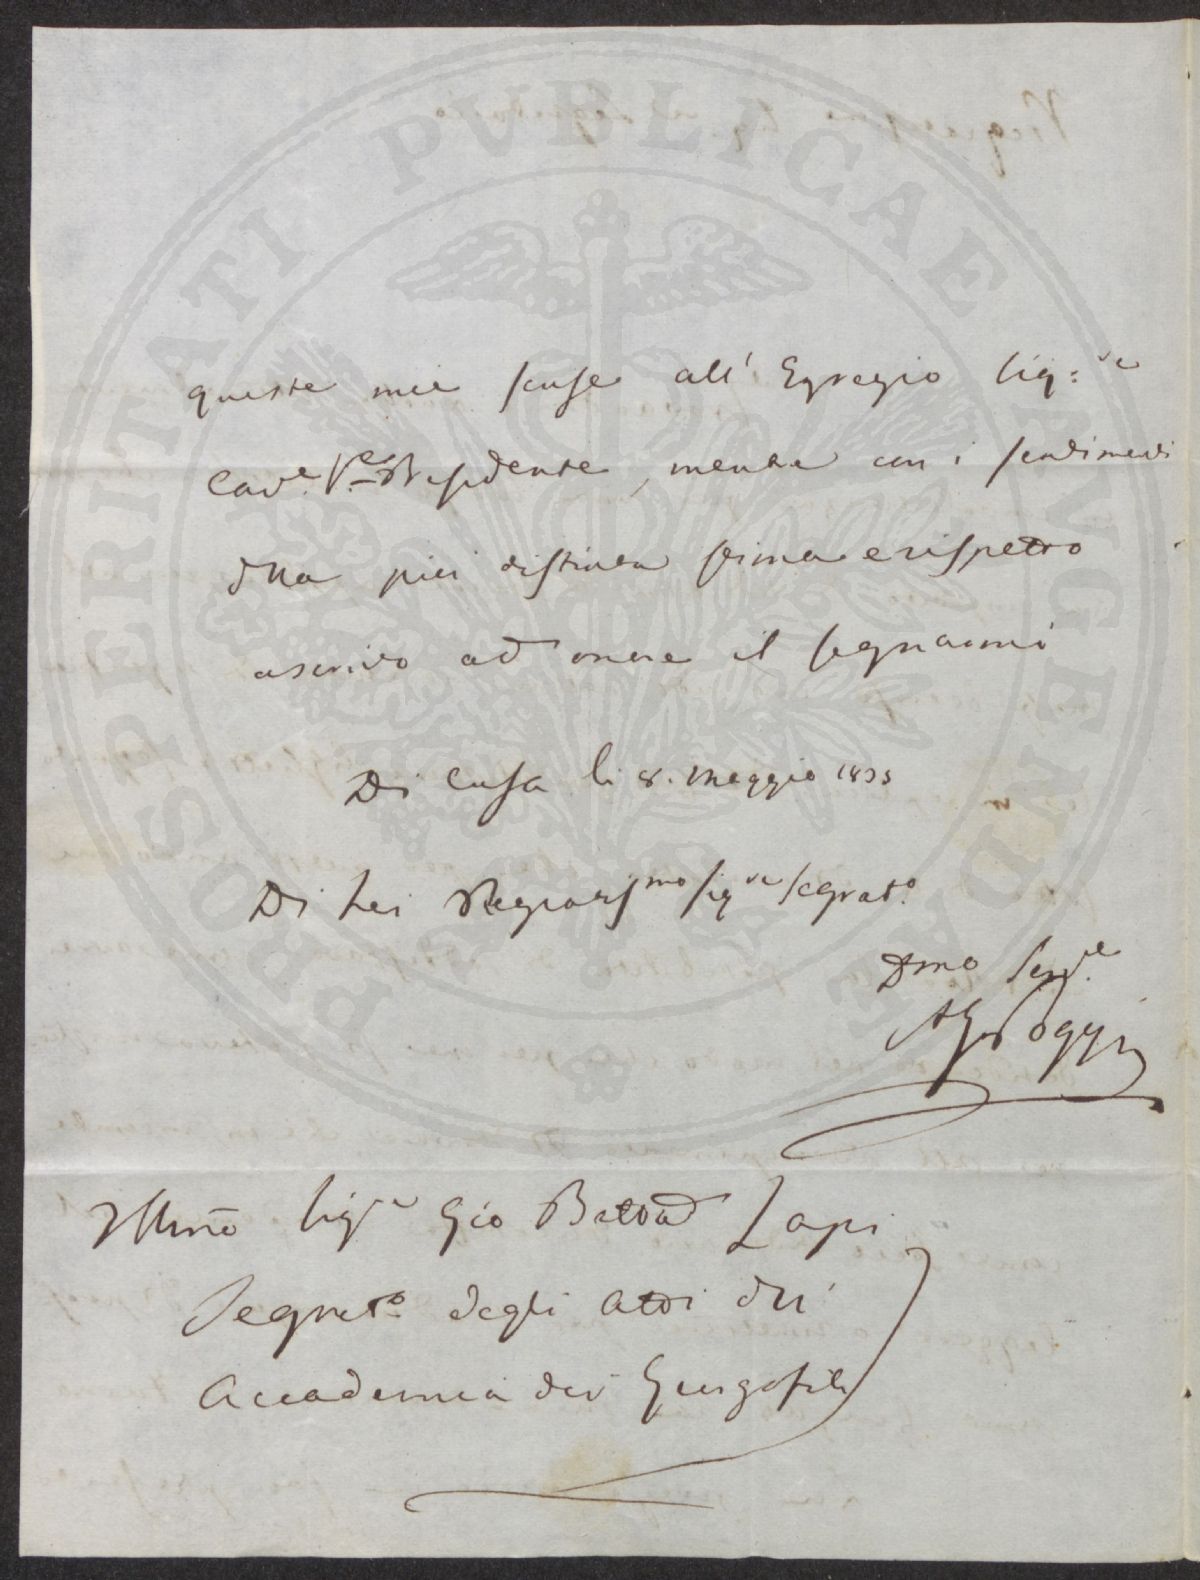 queste mie scuse all' Egregio Sig:re
Cav.e V.e Presidente, mentre con i sentimenti
della più distinta stima e rispetto
ascrivo ad onore il segnarmi
Di Casa li 8. Maggio 1833
Di Lei Pregiatis.mo Sig.re Segret.o
Dmo Ser.e
Poggi
Illmo Sig.re Gio Batta Lapi
Segret.o degli Atti dell'
Accademia dei Georgofili
PROSPERITATI PUBLICAE AUGENDAE